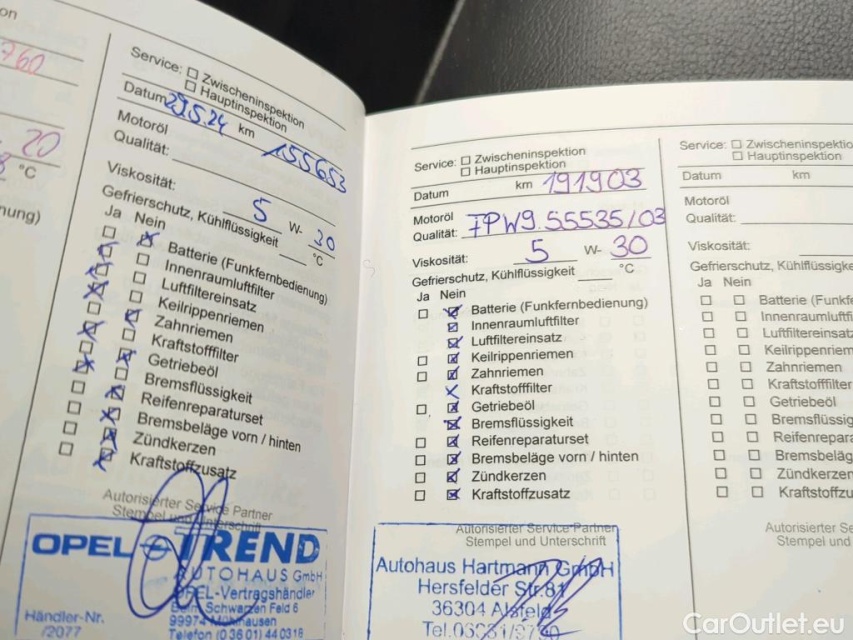 on
760
20
°C
nung)
Service: Zwischeninspektion
Hauptinspektion
Datum 29.5.24 km 155653
Motoröl
Qualität:
Viskosität: 5 W- 30
Gefrierschutz, Kühlflüssigkeit °C
Ja Nein
Batterie (Funkfernbedienung)
Innenraumluftfilter
Luftfiltereinsatz
Keilrippenriemen
Zahnriemen
Kraftstofffilter
Getriebeöl
Bremsflüssigkeit
Reifenreparaturset
Bremsbeläge vorn / hinten
Zündkerzen
Kraftstoffzusatz
Autorisierter Service Partner
Stempel und Unterschrift
OPEL TREND
AUTOHAUS GmbH
OPEL-Vertragshändler
Beim Schwarzen Feld 6
99974 Mühlhausen
Telefon (0 36 01) 44 0316
Händler-Nr.
/2077
Service: Zwischeninspektion
Hauptinspektion
Datum km 191903
Motoröl
Qualität: FPW9.55535/03
Viskosität: 5 W- 30
Gefrierschutz, Kühlflüssigkeit °C
Ja Nein
Batterie (Funkfernbedienung)
Innenraumluftfilter
Luftfiltereinsatz
Keilrippenriemen
Zahnriemen
Kraftstofffilter
Getriebeöl
Bremsflüssigkeit
Reifenreparaturset
Bremsbeläge vorn / hinten
Zündkerzen
Kraftstoffzusatz
Autorisierter Service Partner
Stempel und Unterschrift
Autohaus Hartmann GmbH
Hersfelder Str.81
36304 Alsfeld
Service: Zwischeninspektio
Hauptinspektion
Datum km
Motoröl
Qualität:
Viskosität:
Gefrierschutz, Kühlflüssigke
Ja Nein
Batterie (Funkf
Innenraumluftfi
Luftfiltereinsatz
Keilrippenrieme
Zahnriemen
Kraftstofffilter
Getriebeöl
Bremsflüssig
Reifenrepara
Bremsbeläg
Zündkerzen
Kraftstoffzu
Autorisierter Se
Stempel und
CarOutlet.eu